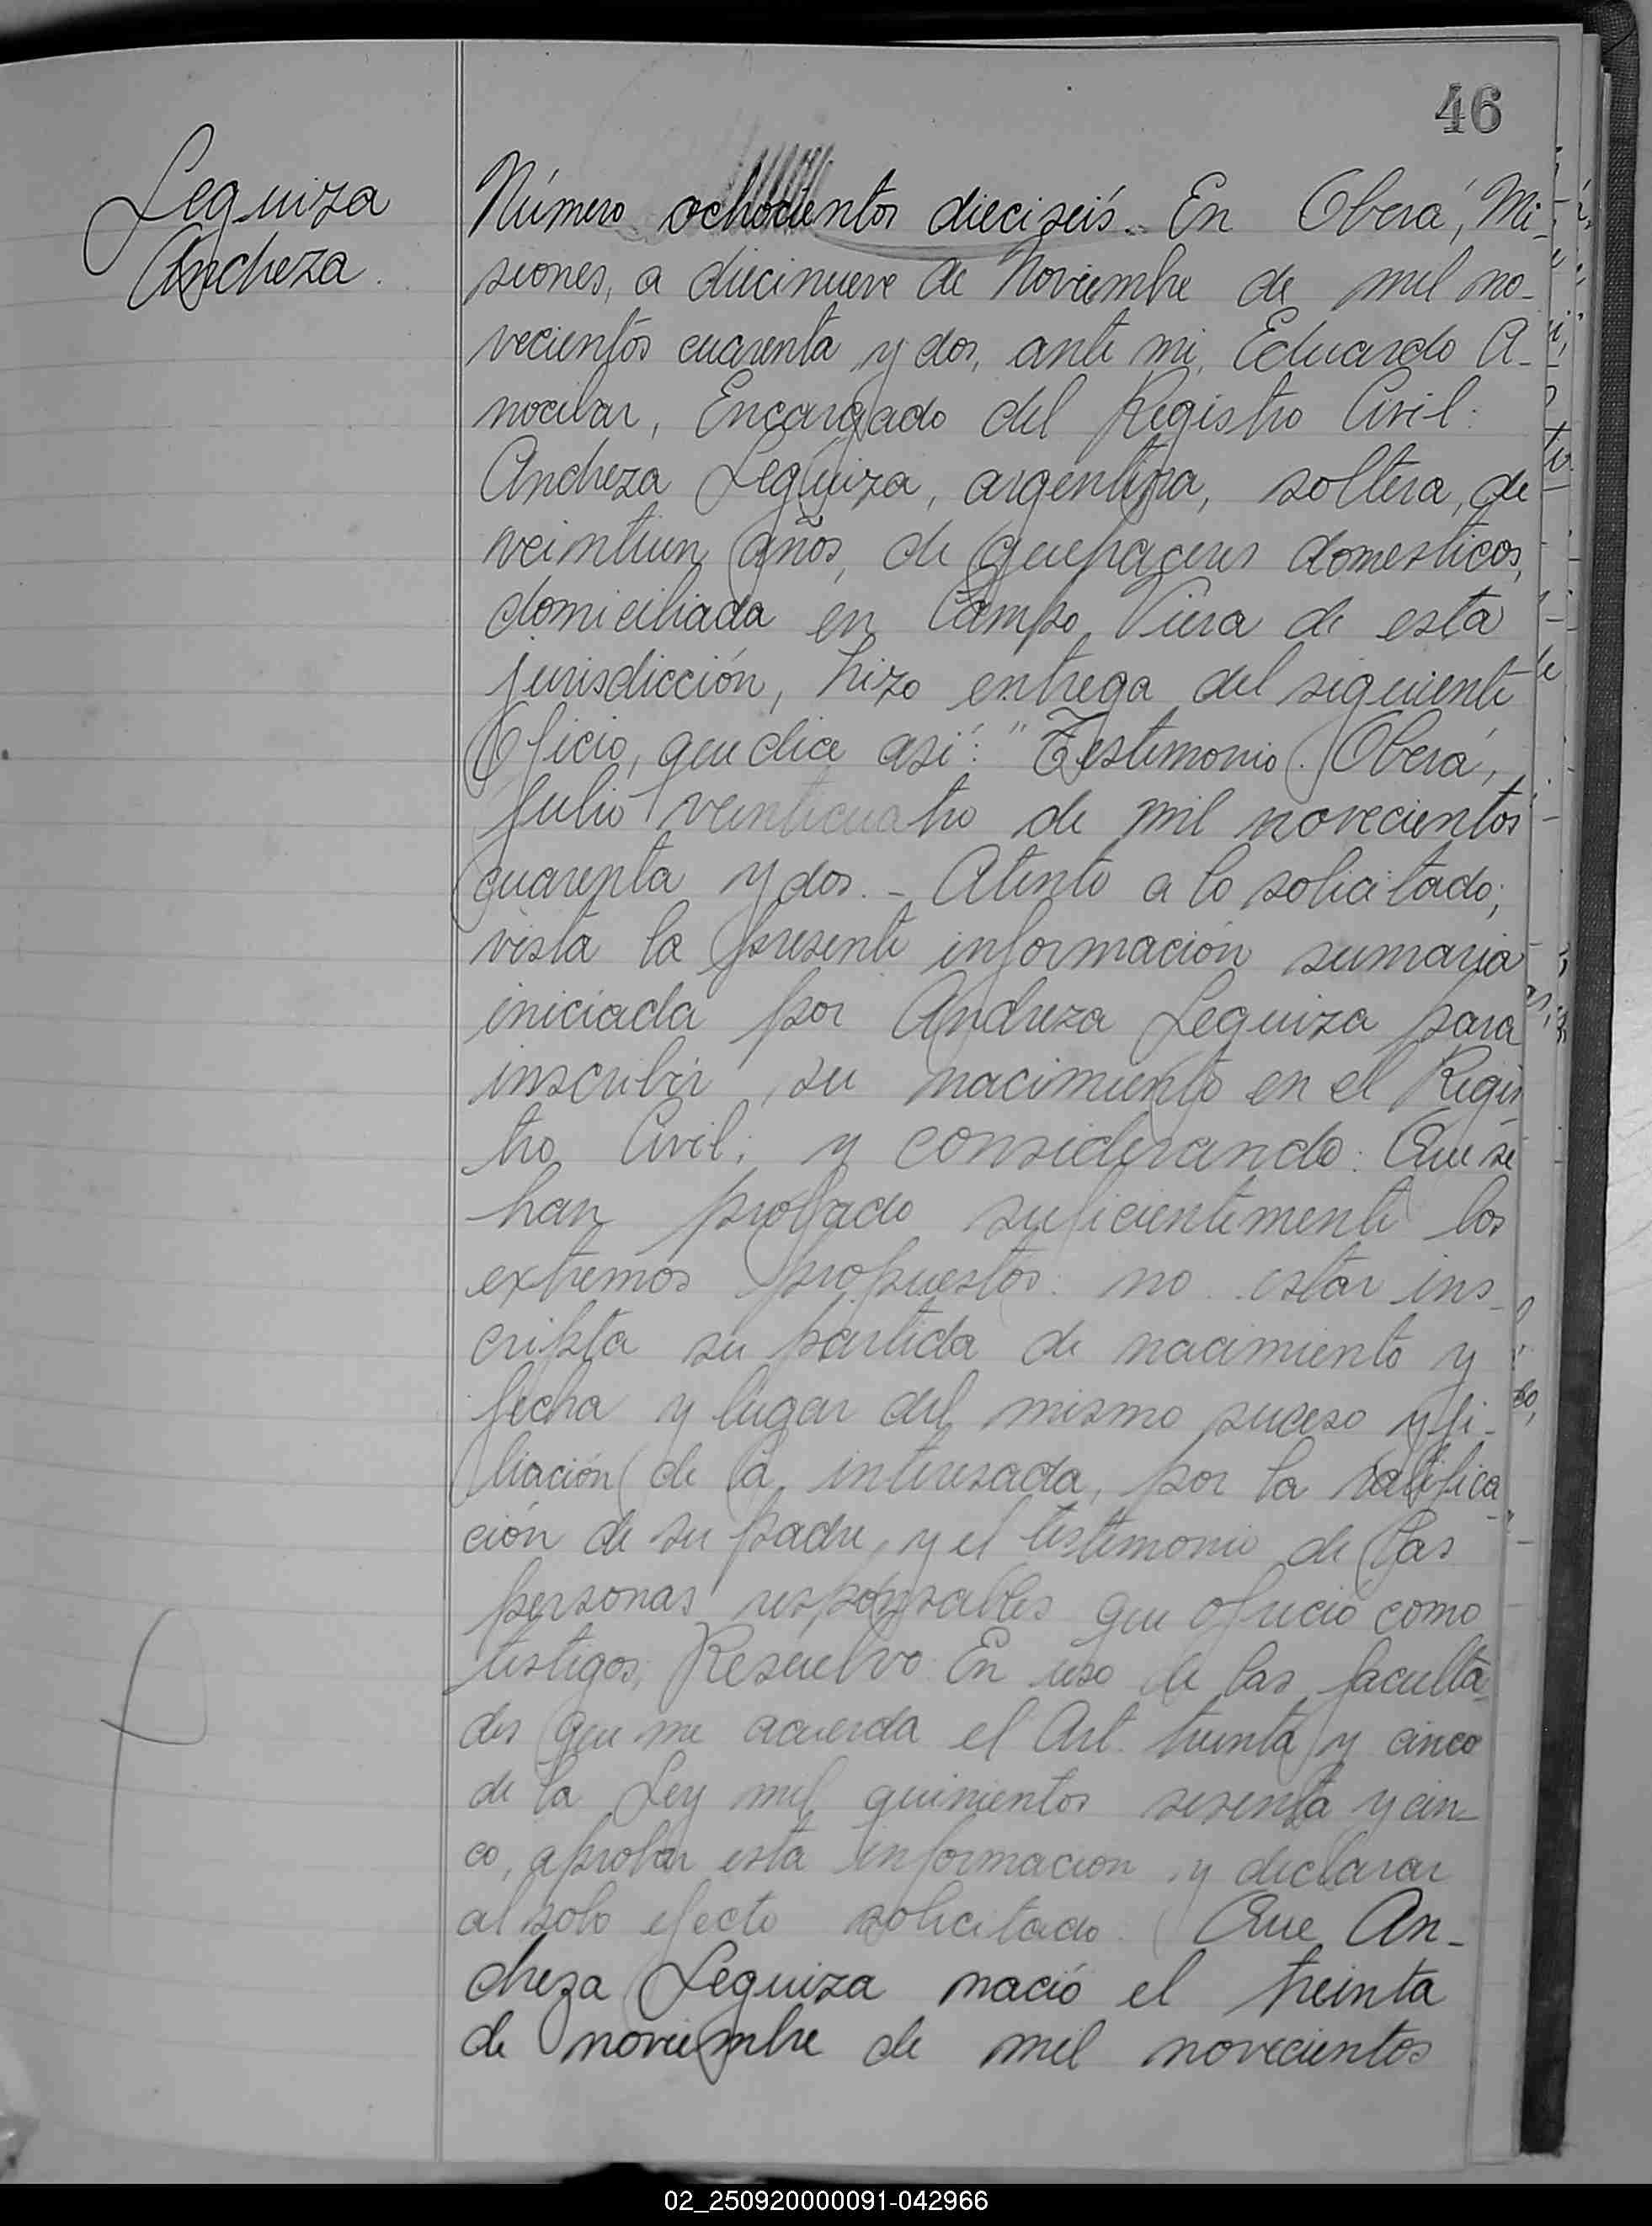 46
Leguiza
Andreza.
Número ochocientos dieciseís. En Oberá, Mi-
siones, a diecinueve de Noviembre de mil no-
vecientos cuarenta y dos, ante mi, Eduardo A-
nocibar, Encargado del Registro Civil:
Andreza Leguiza, argentina, soltera, de
veintiun años, de quehaceres domesticos,
domiciliada en Campo Viera de esta
jurisdicción, hizo entrega del siguiente
Oficio, que dice así: "Testimonio. Oberá,
Julio veinticuatro de mil novecientos
cuarenta y dos. - Atento a lo solicitado;
vista la presente información sumaria
iniciada por Andreza Leguiza para
inscribir su nacimiento en el Regis
tro Civil; y considerando: Que se
han probado suficientemente los
extremos propuestos: no estar ins-
cripta su partida de nacimiento y
fecha y lugar del mismo suceso y fi-
liación de la interesada, por la ratifica-
ción de su padre, y el testimonio de las
personas responsables que ofreció como
testigos, Resuelvo: En uso de las faculta-
des que me acuerda el Art. treinta y cinco
de la Ley mil quinientos sesenta y cin-
co, aprobar esta informacion y declarar
al solo efecto solicitado: Que An-
dreza Leguiza nació el treinta
de noviembre de mil novecientos
02_250920000091-042966